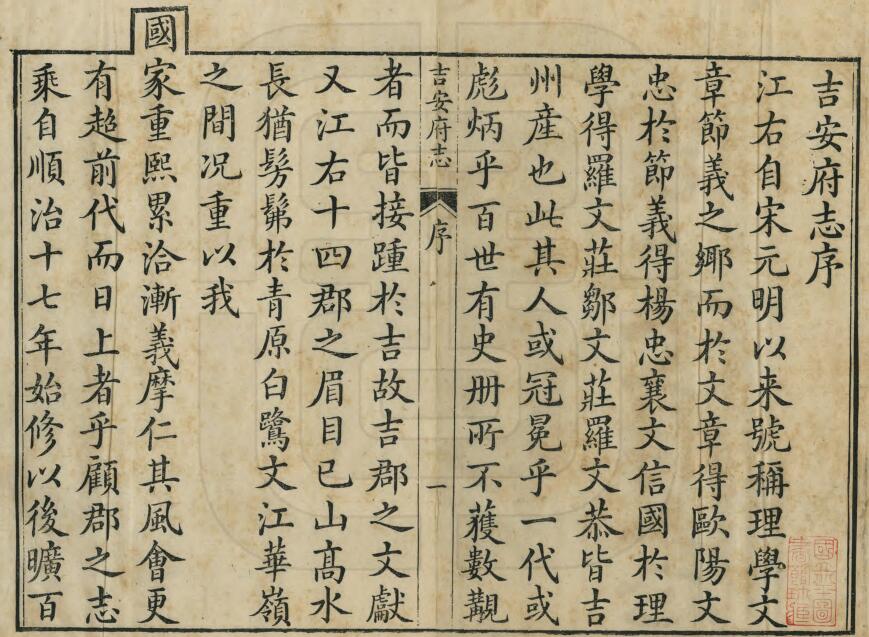 吉安府志序
江右自宋元明以来號稱理學文
章節義之鄉而於文章得歐陽文
忠於節義得楊忠襄文信國於理
學得羅文莊鄒文莊羅文恭皆吉
州産也此其人或冠冕乎一代或
彪炳乎百世有史册所不獲數覯
吉安府志
序
一
者而皆接踵於吉故吉郡之文獻
又江右十四郡之眉目已山高水
長猶髣髴於青原白鷺文江華嶺
之間况重以我
國家重熙累洽漸義摩仁其風會更
有超前代而日上者乎顧郡之志
乘自順治十七年始修以後曠百